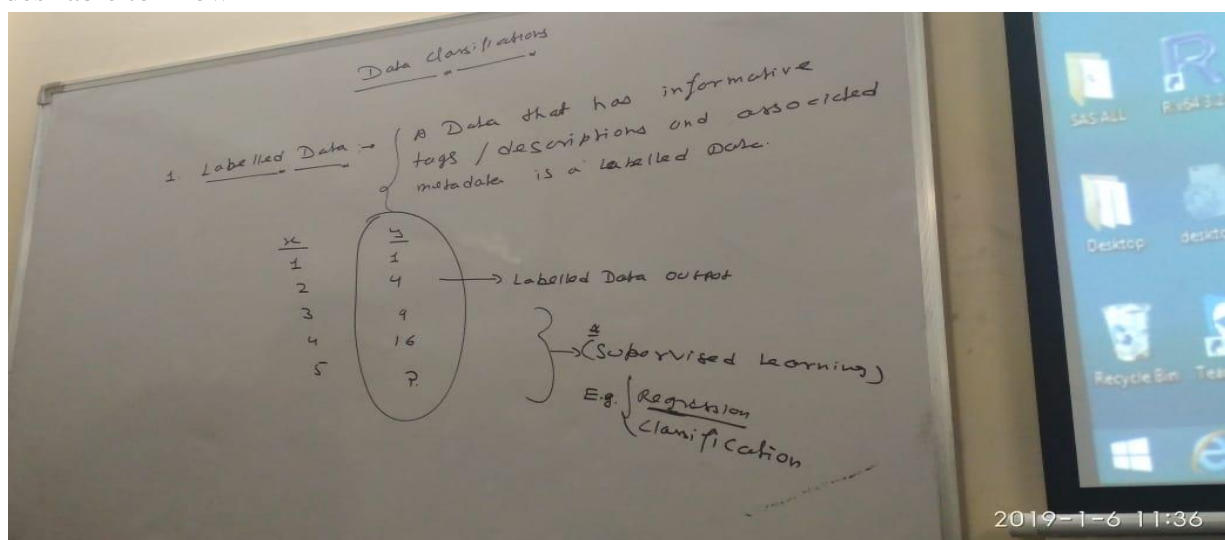 Data Classifications
1. Labelled Data :- A Data that has informative
tags / descriptions and associcted
metadata is a Labelled Data.
x y
1 1
2 4 → Labelled Data output
3 9
4 16
5 ?
(Supervised Learning)
E.g. Regression
Classification
SAS ALL
Desktop
Recycle Bin
2019-1-6 11:36